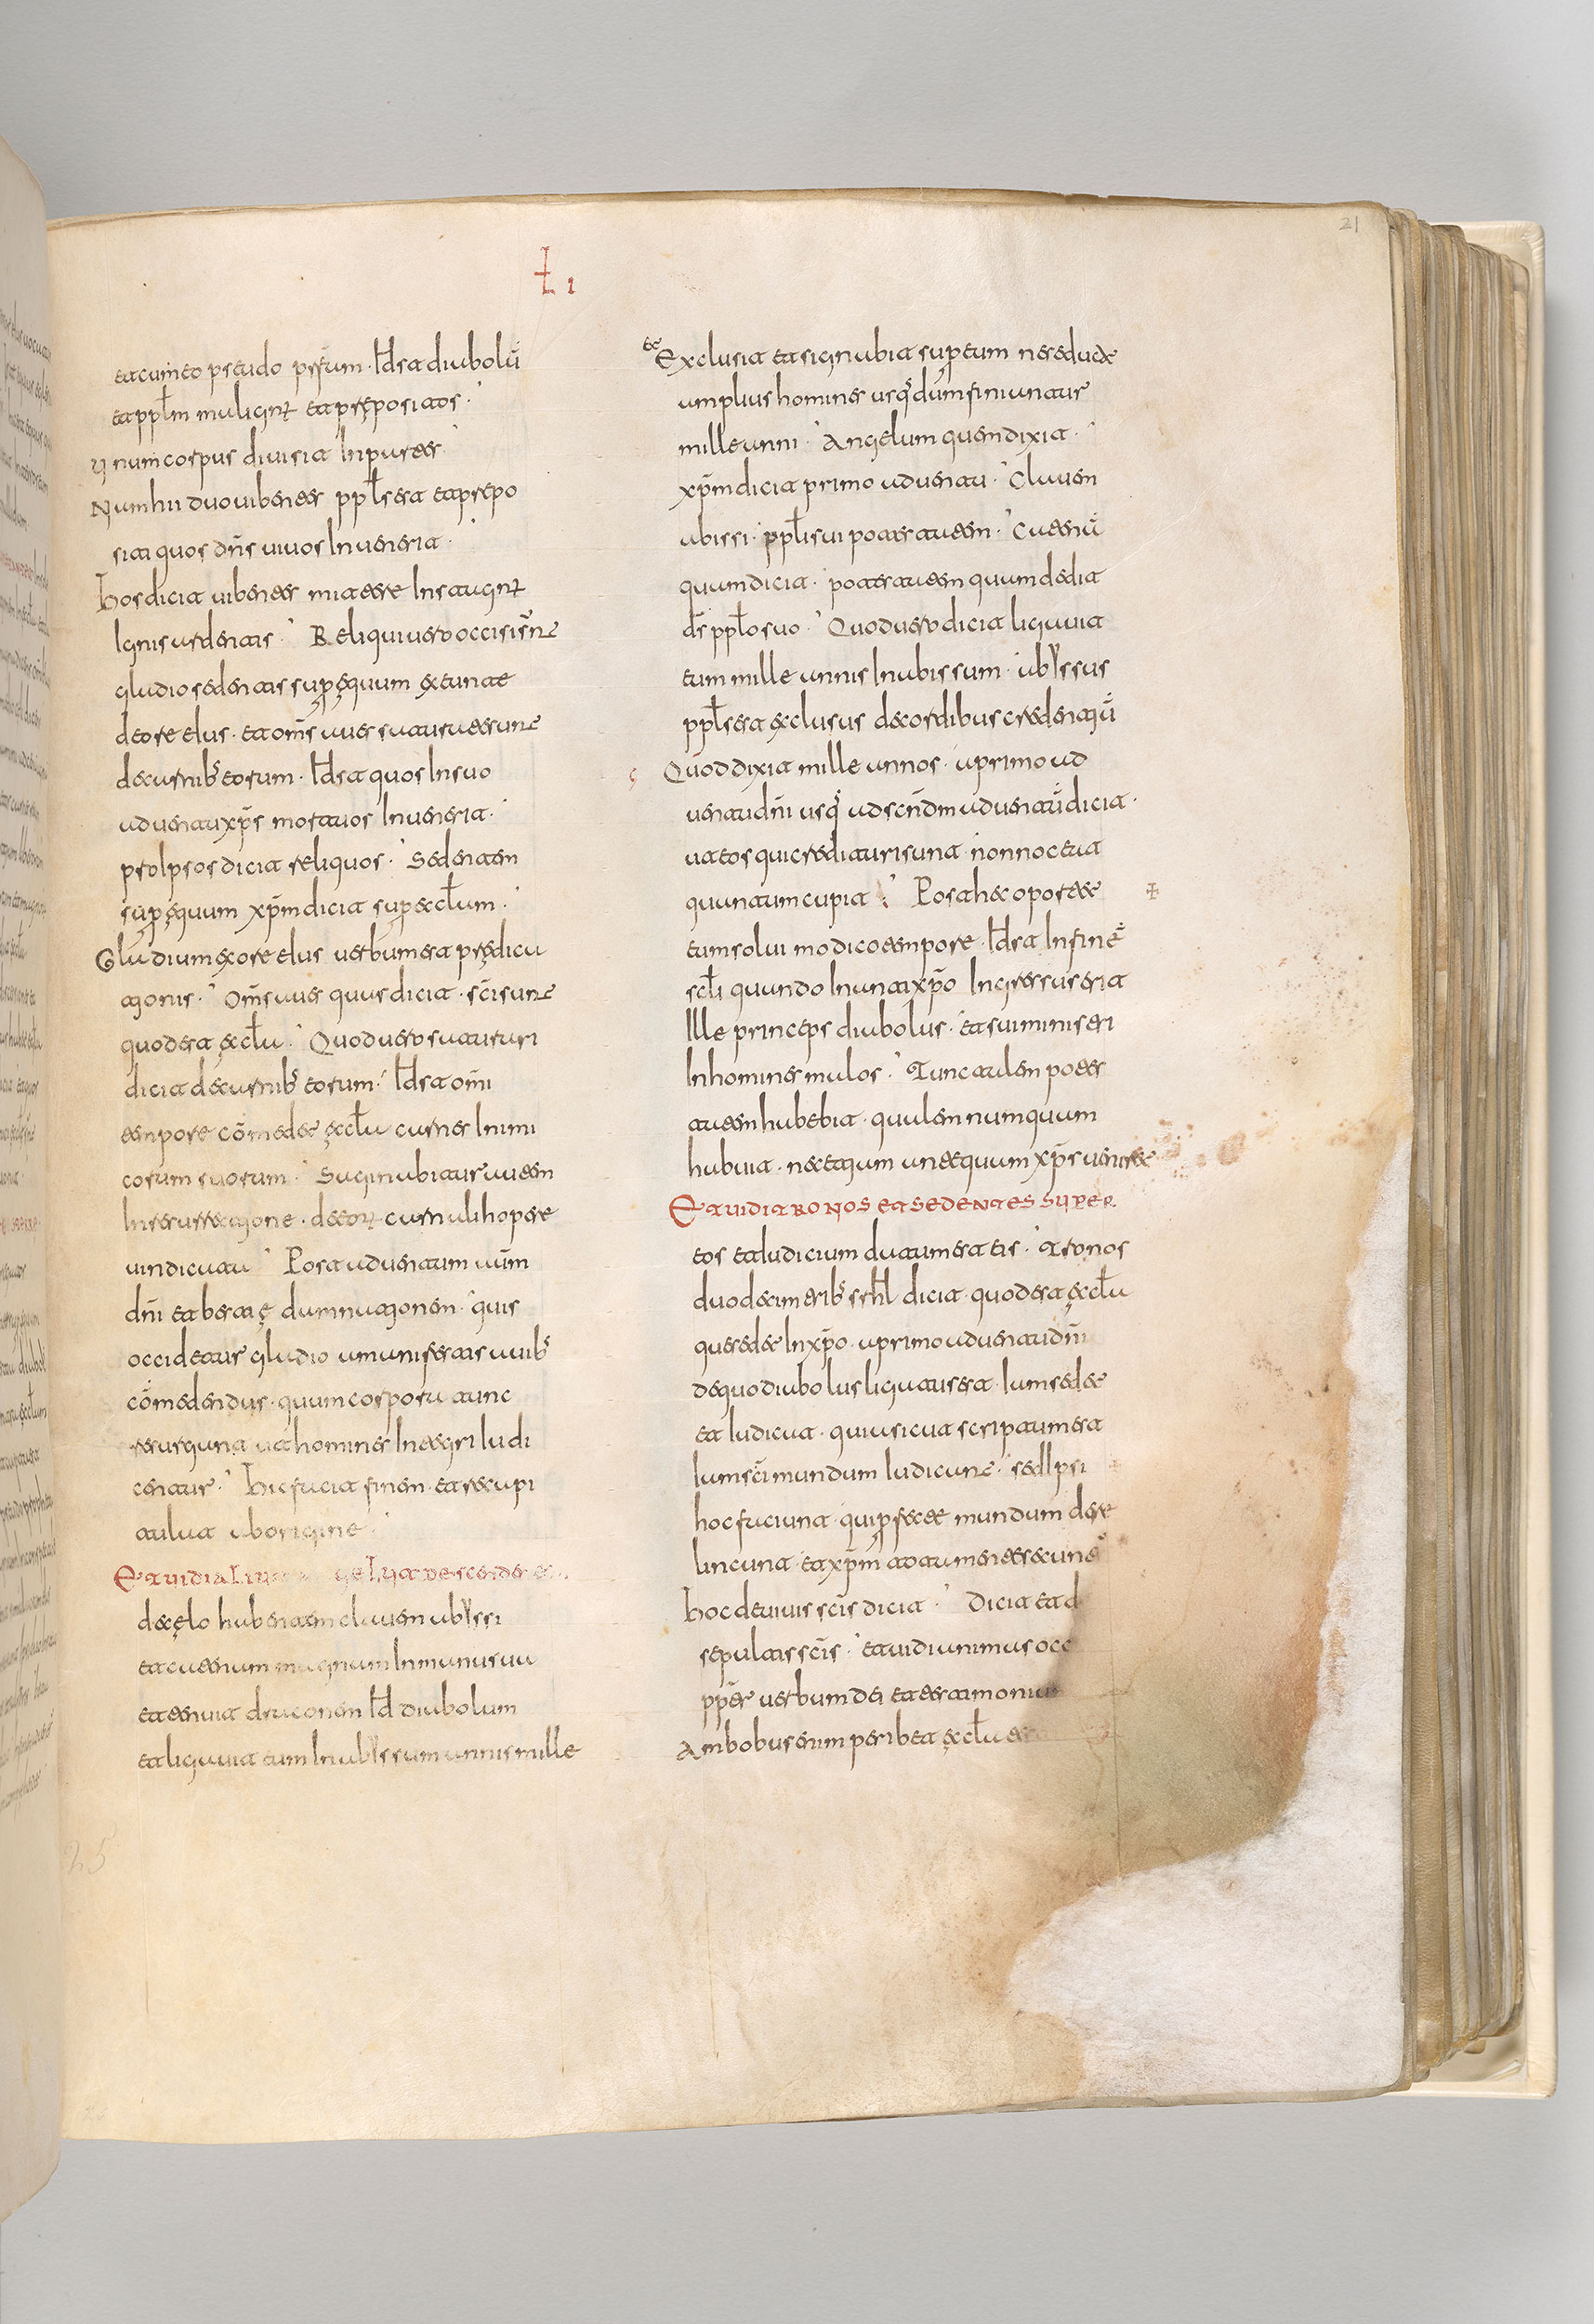 Łı
et cum eo pseudo prftam · Id est diabolū
et pplm malignū et prępositos ·
Unum corpus diuisit In partes
Num hii duo uibentes ppls est et prepo
siti quos dn̄s uiuos Inuenerit ·
Hos dicit uibentes mitere In stagnū
Ignis ardentis · Reliqui uero occisi sn̄t
gladio sedentis sup ęquum exeunte
de ore eius · et om̄s aues saturate sunt
de carnibꝰ eorum · Id est quos In suo
aduentu xp̄s mortuos Inuenerit ·
pro Ipsos dicit reliquos · Sedentem
sup ęquum xp̄m dicit sup ecłam ·
Gladium ex ore eius uerbum est prędica
tionis · Om̄s aues quas dicit · sc̄i sunt
quod est ęcła · Quod uero saturari
dicit de carnibꝰ eorum · Id est om̄i
tempore cōmedet ęcła carnes Inimi
corum suorum · Saginabitur autem
In resurrectione · de eoꝝ carnali hopere
uindicata Post aduentum
dn̄i et bestię damnationem · quis
occidetur gladio a muniferis auibꝰ
cōmedendus · quum corpora tunc
resurgunt ut homines Integri Iudi
centur · Hic facit finem et recapi
tulat ab origine
Et uidi aliu descende
de cęlo habentem clauem abyssi
et catenam magnam In manu sua
et tenuit draconem Id diabolum
et ligauit eum In abyssum annis mille
21
et Exclusit et signabit sup eum ne seducat
amplius homines usqꝰ dum finiuntur
mille anni · Angelum quem dixit ·
xp̄m dicit primo aduentu · Clauem
abissi · ppłi sui potestatem · Catenā
quam dicit · potestatem quam dedit
ds̄ ppło suo · Quod uero dicit ligauit
eum mille annis In abissum · abyssus
ppłs est exclusus de cordibus credentiū
Quod dixit mille annos · a primo ad
uentu dn̄i usqꝰ ad scn̄dm aduentū dicit ·
ut eos qui credituri sunt non noceat
quantum cupit Post hec oportet
eum solui modico tempore · Id est In finē
scłi quando In antixp̄o Ingressus erit
Ille princeps diabolus · et sui ministri
In homines malos · Tunc talem potes
tatem habebit · qualem numquam
habuit · nec etiam antequam xp̄s ueniret
Et uidi tronos et sedentes super
eos et Iudicium datum est eis · Tronos
duodecim tribꝰ srhl dicit quod est ęcła
que sedet In xp̄o · a primo aduentu dn̄i
de quo diabolus ligatus est · Iam sedet
et Iudicat · quia sicut scriptum est
Iam sc̄i mundum Iudicant · sed Ipsi
hoc faciunt · qui pfecte mundum dere
lincunt et xp̄m toto mente secunt
Hoc de uiuis sc̄is dicit · Dicit et d
sepultis sc̄is · et uidi animas occ
ppter uerbum dei et testimoniu
Ambobus enim peribet ęcła
25